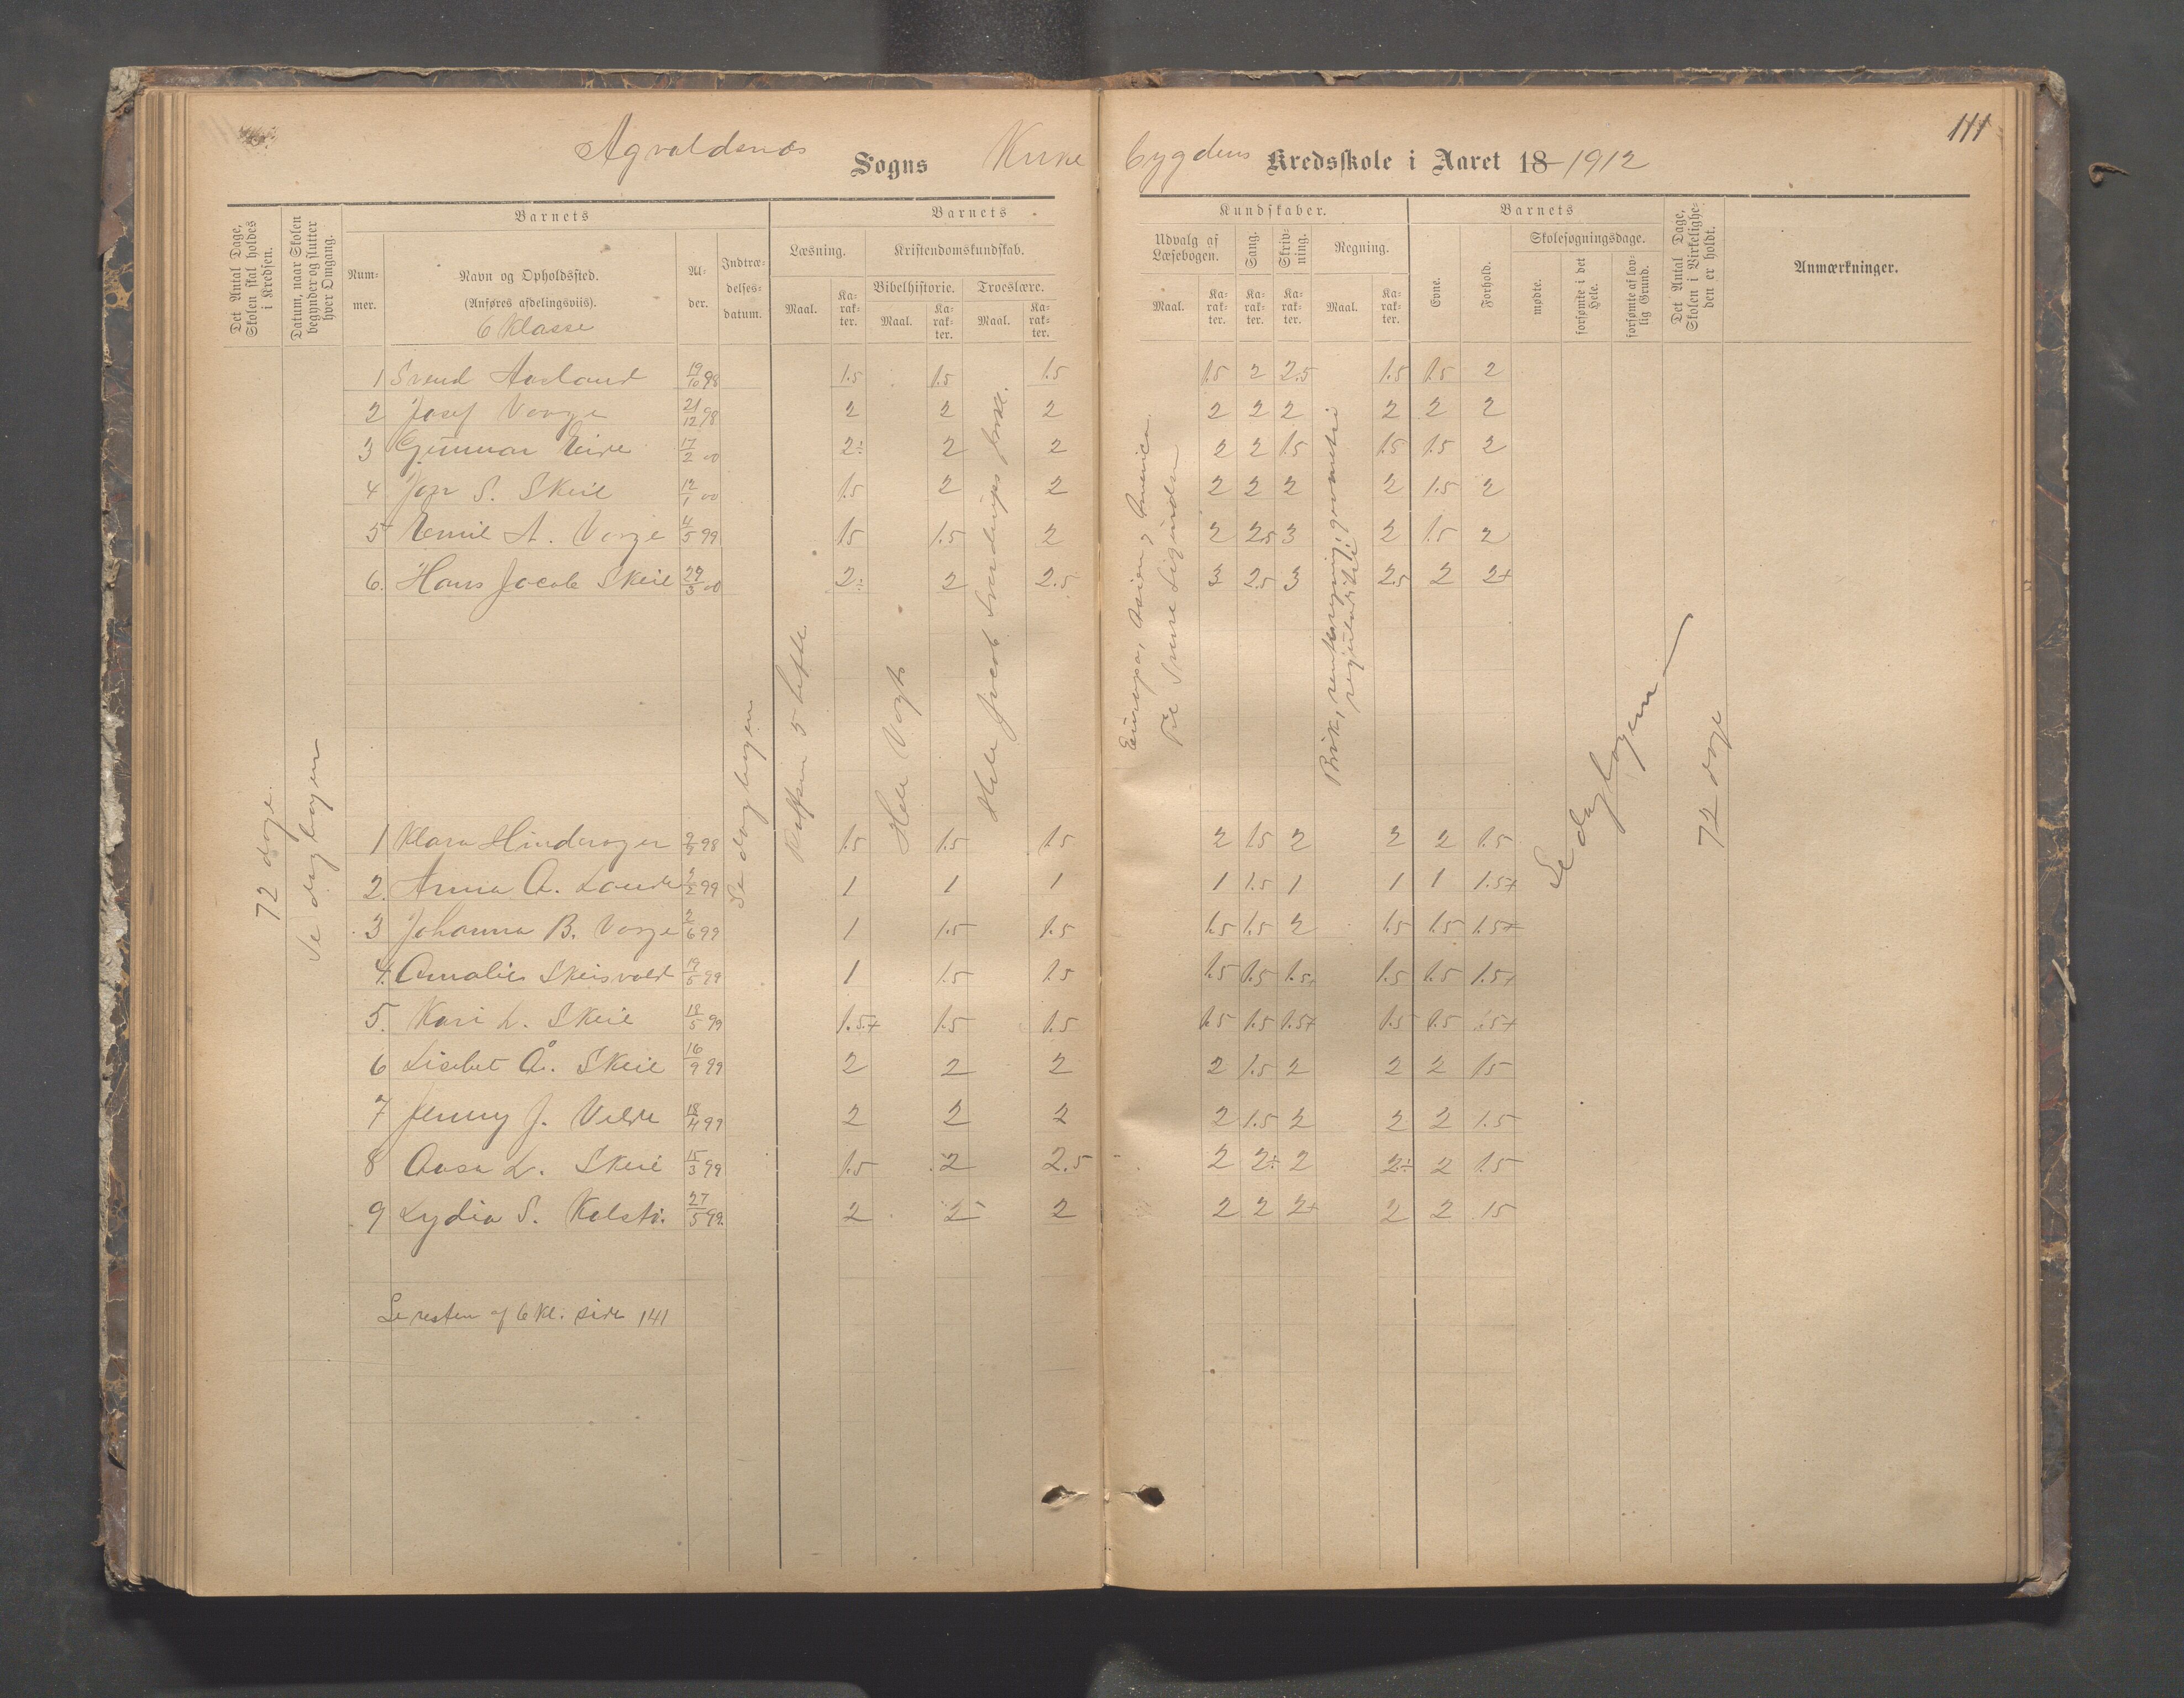 111
Agvaldsnes Sogns Kirke bygdens Kredsskole i Aaret 18 1912
Det Antal Dage, Skolen skal holdes i Kredsen.
Datum, naar Skolen begynder og slutter hver Omgang.
Barnets
Nummer.
Navn og Opholdssted.
(Anføres afdelingsviis).
6 Klasse
Alder.
Indtrædelsesdatum.
Barnets Kundskaber.
Læsning.
Maal. Karakter.
Kristendomskundskab.
Bibelhistorie. Troeslære.
Maal. Karakter. Maal. Karakter.
Udvalg af Læsebogen.
Maal. Karakter.
Sang. Karakter.
Skrivning. Karakter.
Regning.
Maal. Karakter.
Barnets
Evne.
Forhold.
Skolesøgningsdage.
mødte.
forsømte i det Hele.
forsømte af lovlig Grund.
Det Antal Dage, Skolen i Virkeligheden er holdt.
Anmærkninger.
1 Svend Aasland 19/10 98 1.5 1.5 1.5 1.5 2 2.5 1.5 1.5 2
2 Josef Vorze 21/12 98 2 2 2 2 2 2 2 2 2
3 Gunnar Eide 17/2 00 2÷ 2 2 2 2 1.5 1.5 1.5 2
4 Jon S. Skeie 12/1 00 1.5 2 2 2 2 2 2 1.5 2
5 Emil A. Vorze 4/5 99 1.5 1.5 2 2 2.5 3 2 1.5 2
6. Hans Jacob Skeie 29/3 00 2÷ 2 2.5 3 2.5 3 2.5 2 2+
72 dage.
Se dagbogen
Se dagbogen
5 hefte
Hele Vogts
Hele Jacob Sverdrups forkl.
Europa, Asien, Amerika
Til
Brøk, renteregning, geometri
reguladetri
Se dagbogen
72 dage
1 Klara Hinderager 2/2 98 1.5 1.5 1.5 2 1.5 2 2 2 1.5
2. Anna A. Lande 2/2 99 1 1 1 1 1.5 1 1 1 1.5+
3 Johanna B. Vorze 2/6 99 1 1.5 1.5 1.5 1.5 2 1.5 1.5 1.5+
4. Amalie Skeisvold 19/6 99 1 1.5 1.5 1.5 1.5 1.5 1.5 1.5 1.5+
5. Kari L. Skeie 18/5 99 1.5+ 1.5 1.5 1.5 1.5 1.5+ 1.5 1.5 1.5+
6 Lisebet Å. Skeie 16/9 99 2 2 2 2 1.5 2 2 2 1.5
7 Jenny J. Velde 18/4 99 2 2 2 2 1.5 2 2 2 1.5
8 Aasa L. Skeie 15/3 99 1.5 2 2.5 2 2+ 2 2÷ 2 1.5
9 Lydia S. Kalstø. 27/5 99 2 2 2 2 2 2+ 2 2 1.5
Se resten af 6 kl. side 141